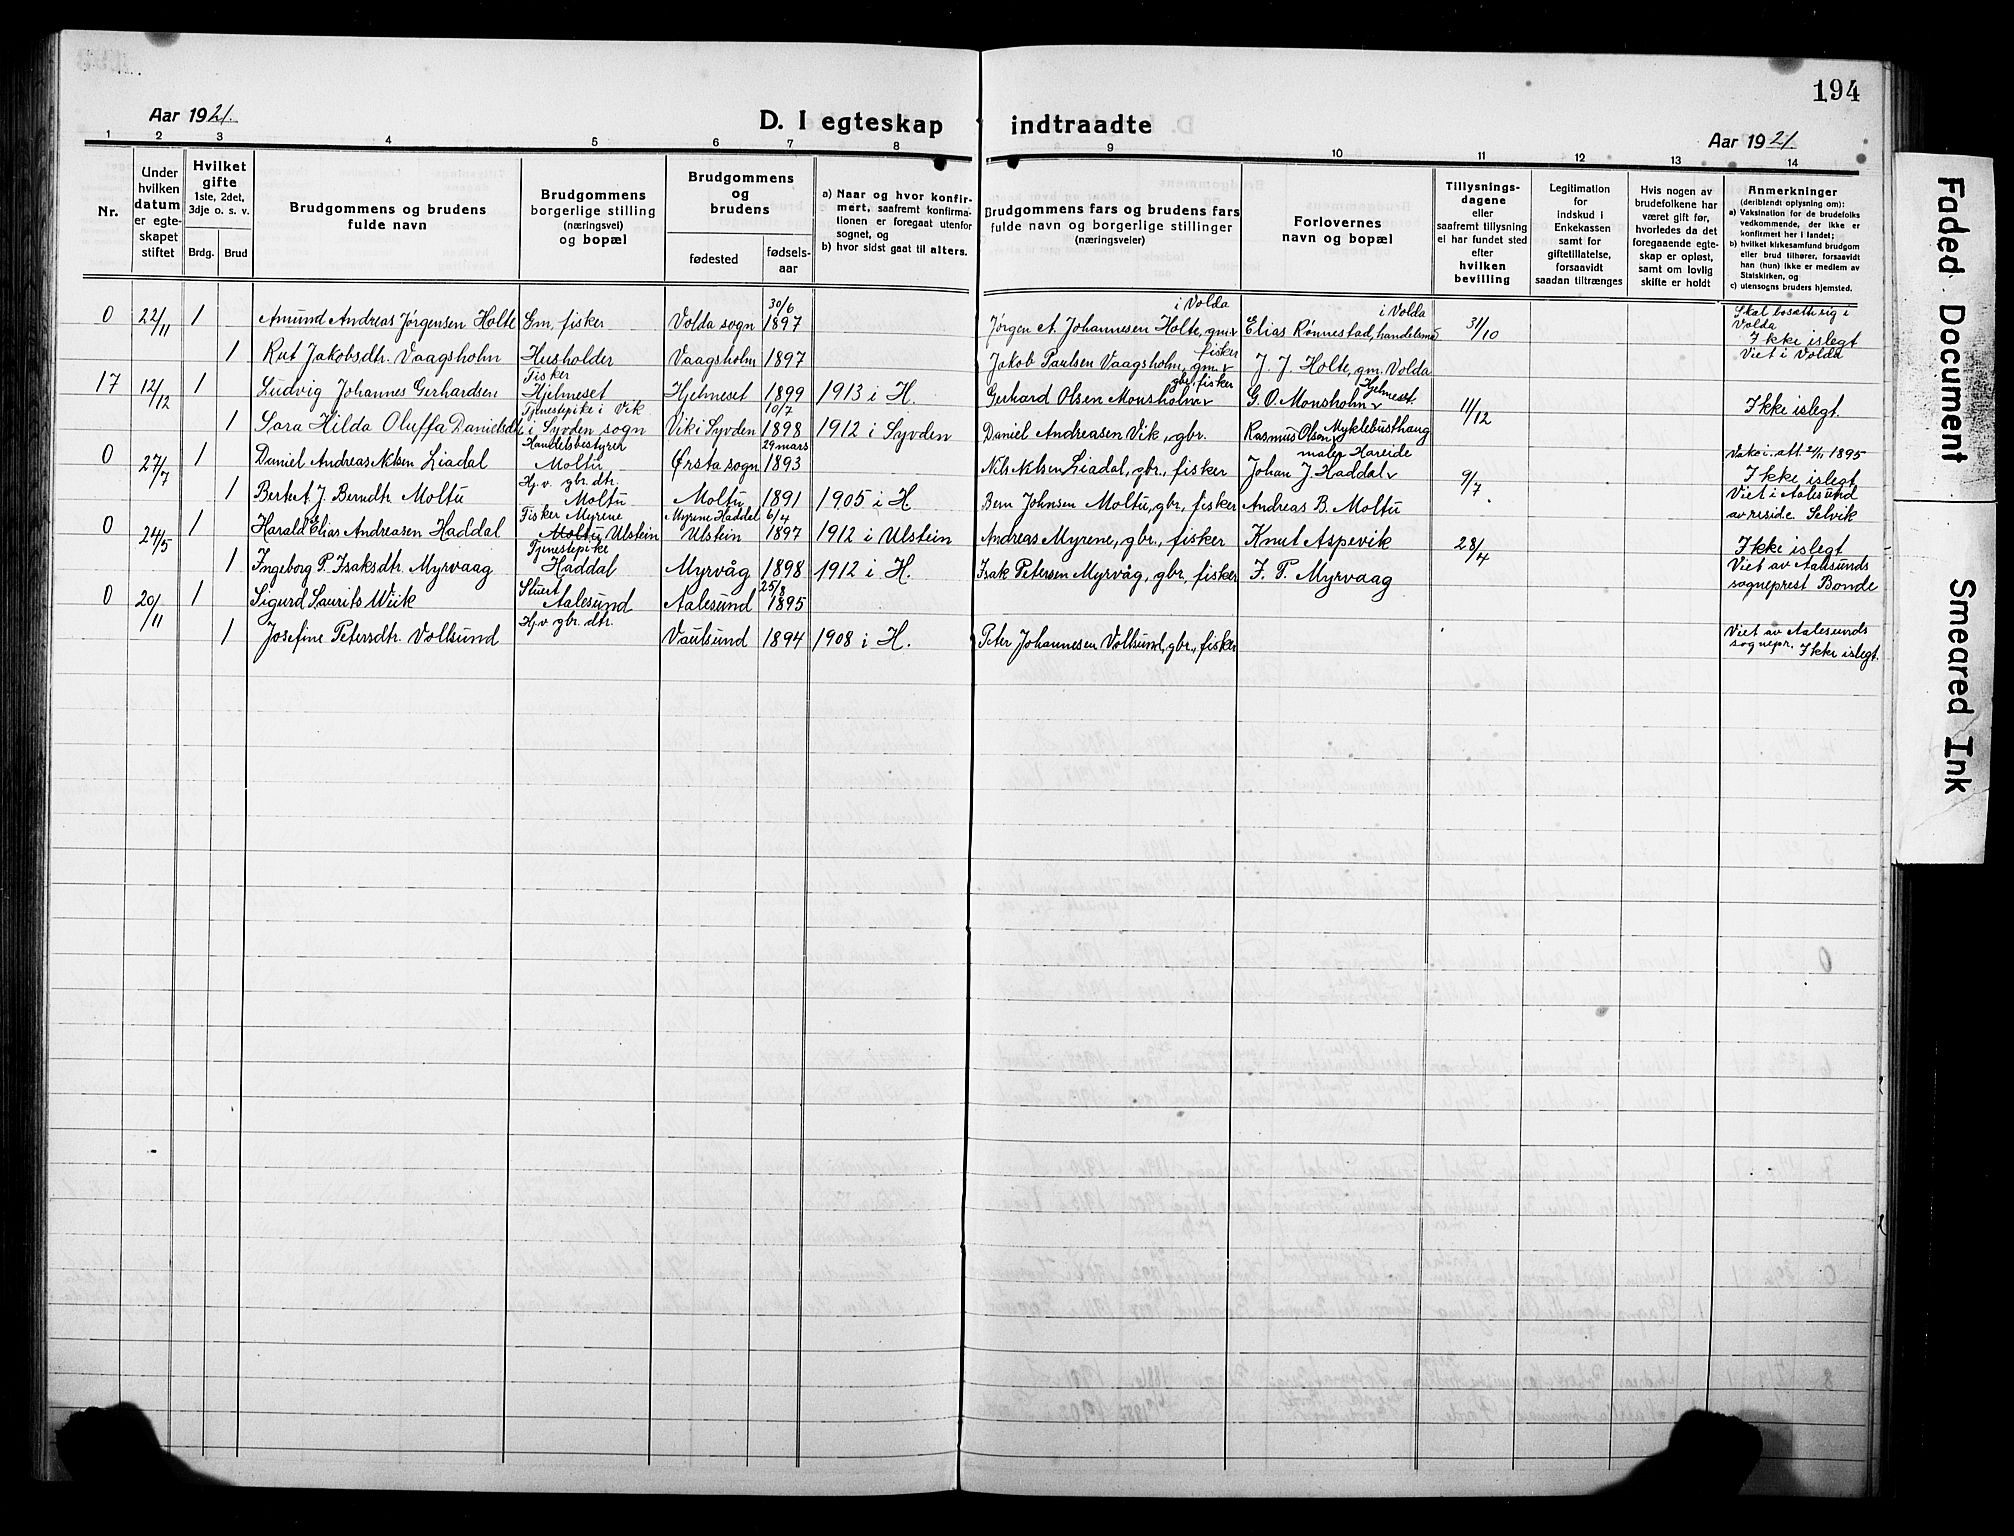 194
Aar 1921.
D. I egteskap indtraadte
Aar 1921.
1 2 3 4 5 6 7 8 9 10 11 12 13 14
Nr.
Under hvilken datum er egteskapet stiftet
Hvilket gifte 1ste, 2det, 3dje o. s. v.
Brdg. Brud
Brudgommens og brudens fulde navn
Brudgommens borgerlige stilling (næringsvei) og bopæl
Brudgommens og brudens
fødested
fødselsaar
a) Naar og hvor konfirmert, saafremt konfirmationen er foregaat utenfor sognet, og
b) hvor sidst gaat til alters.
Brudgommens fars og brudens fars fulde navn og borgerlige stillinger (næringsveier)
Forlovernes navn og bopæl
Tillysningsdagene eller saafremt tillysning ei har fundet sted efter hvilken bevilling
Legitimation for indskud i Enkekassen samt for giftetillatelse, forsaavidt saadan tiltrænges
Hvis nogen av brudefolkene har været gift før, hvorledes da det foregaaende egteskap er opløst, samt om lovlig skifte er holdt
Anmerkninger (deriblandt oplysning om):
a) Vaksination for de brudefolks vedkommende, der ikke er konfirmert her i landet;
b) hvilket kirkesamfund brudgom eller brud tilhører, forsaavidt han (hun) ikke er medlem av Statskirken, og
c) utensogns bruders hjemsted.
0 22/11 1 Amund Andreas Jørgensen Holte Gm, fisker Volda sogn 30/6 1897 Jørgen A. Johannesen Holte, gm. i Volda Elias Rønnestad, handelsm. i Volda 31/10 Skal bosætte sig i Volda Ikke islegt
1 Rut Jakobsdtr. Vaagsholm Husholder Vaagsholm 1897 Jakob Paulsen Vaagsholm, gm. fisker J. J. Holte, gm. Volda Viet i Volda
17 12/12 1 Ludvig Johannes Gerhardsen Fisker Hjelmeset Hjelmeset 1899 1913 i H. Gerhard Olsen Monsholm gbr., fisker G. O. Monsholm Hjelmeset 11/12 Ikke islegt.
1 Sara Hilda Oluffa Danielsdtr Tjenestepike i Vik i Syvden sogn Vik i Syvden 10/7 1898 1912 i Syvden Daniel Andreasen Vik, gbr. Rasmus Olsen Myklebusthaug
0 27/7 1 Daniel Andreas Nilsen Liadal Handelsbestyrer Moltu Ørsta sogn 29 mars 1893 Nils Nilsen Liadal, gbr., fisker Johan J. Haddal maler Hareide 9/7 1895 Ikke islegt
1 Berte J. Berndtr Moltu Hj. v. gbr. dtr. Moltu Moltu 1891 1905 i H Bern Johnsen Moltu, gbr, fisker Andreas B. Moltu Viet i Aalesund av reside. Selvik
0 24/5 1 Harald Elias Andreasen Haddal Fisker Myrene Moltu Ulstein Myrene Haddal Ulstein 6/4 1897 1912 i Ulstein Andreas Myrene, gbr., fisker Knut Aspevik 28/4 Ikke islegt
1 Ingeborg P. Isaksdtr. Myrvaag Tjenestepike Haddal Myrvåg 1898 1912 i H. Isak Petersen Myrvåg, gbr, fisker I. P. Myrvaag Viet av Aalesunds sogneprest Bonde
0 20/11 1 Sigurd Laurits Wiik Stuert Aalesund Aalesund 25/8 1895
1 Josefine Petersdtr. Voltsund Hj. v. gbr. dtr. Vautsund 1894 1908 i H. Peter Johannesen Voltsund, gbr., fisker Viet av Aalesunds sognepr. Ikke islegt.
Faded Document
Smeared Ink